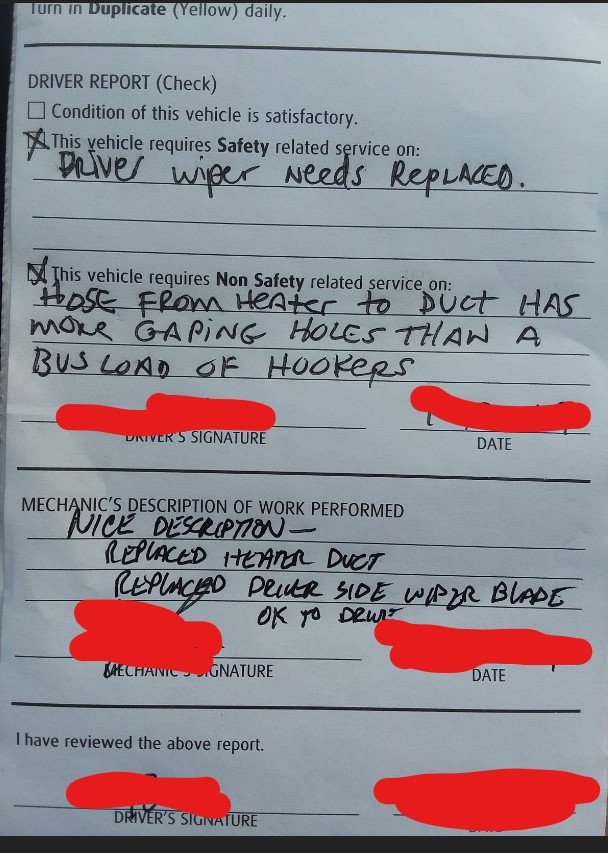 Turn in Duplicate (Yellow) daily.
DRIVER REPORT (Check)
Condition of this vehicle is satisfactory.
This vehicle requires Safety related service on:
DRIVER wiper NEEDS REPLACED.
This vehicle requires Non Safety related service on:
HOSE FROM HEATER to DUCT HAS
MORE GAPING HOLES THAN A
BUS LOAD OF HOOKERS
DRIVER'S SIGNATURE
DATE
MECHANIC'S DESCRIPTION OF WORK PERFORMED
NICE DESCRIPTION—
REPLACED HEATER DUCT
REPLACED DRIVER SIDE WIPER BLADE
OK TO DRIVE
MECHANIC'S SIGNATURE
DATE
I have reviewed the above report.
DRIVER'S SIGNATURE